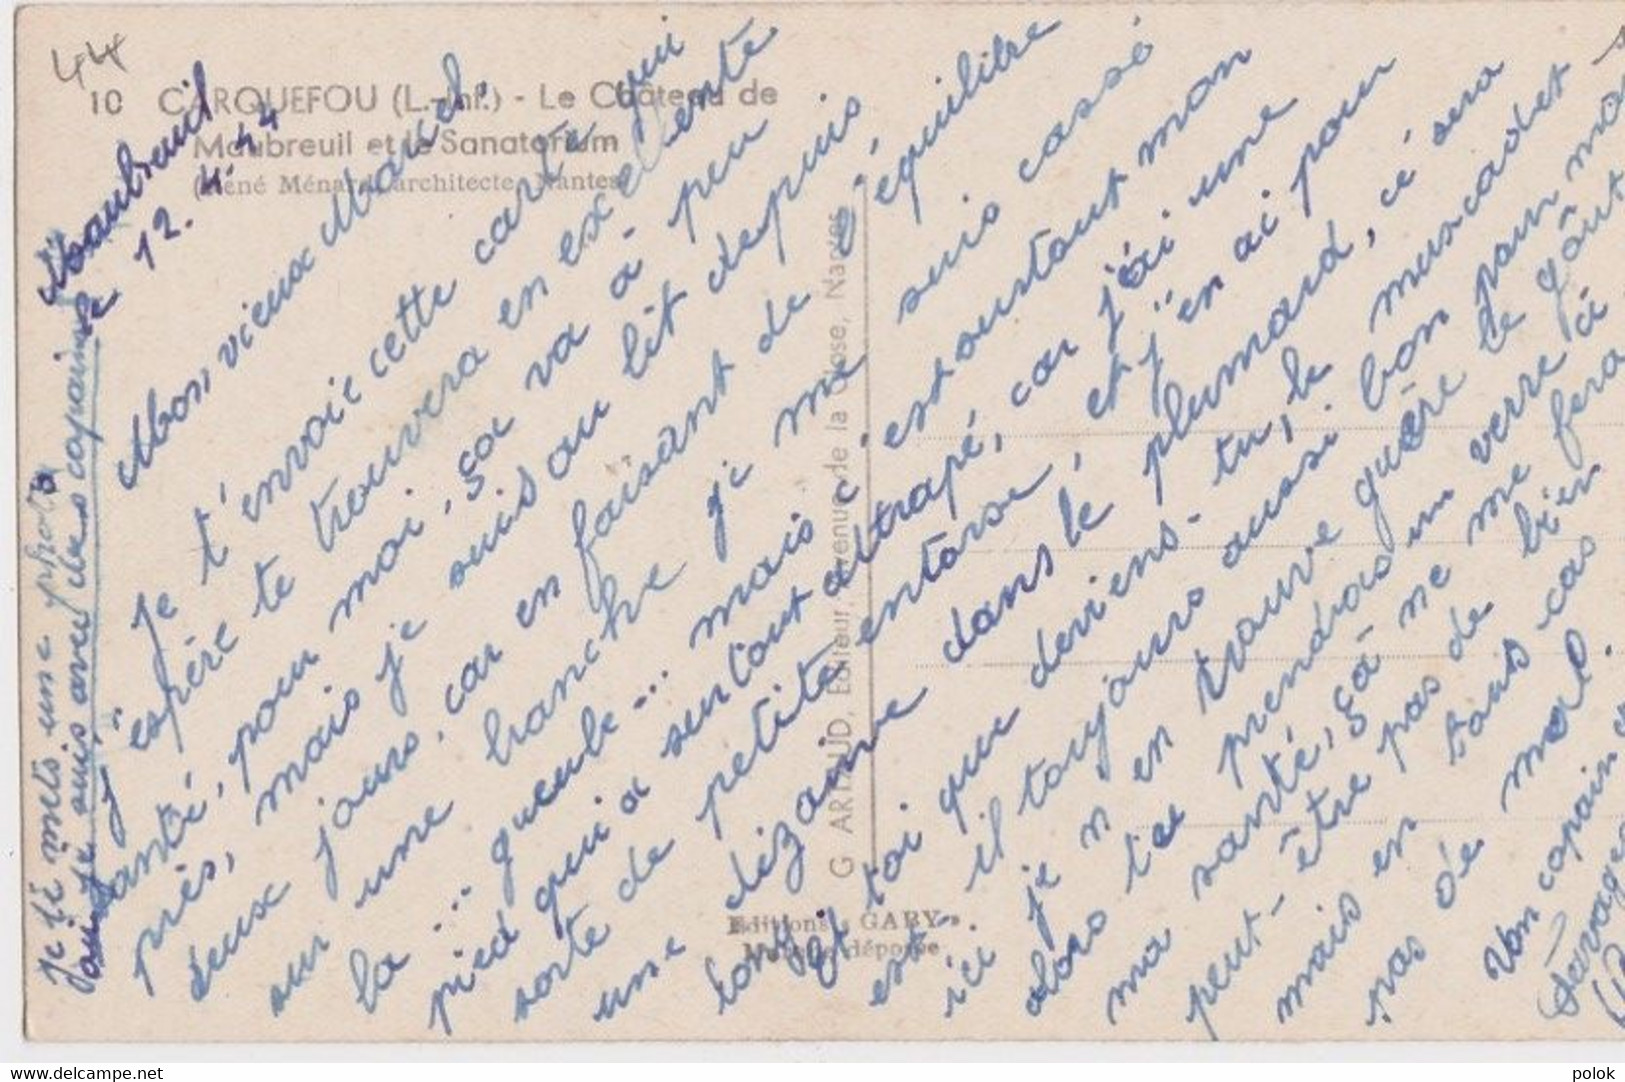 44
10 CARQUEFOU (L.-Inf.) - Le Château de
Maubreuil et le Sanatorium
(René Ménard, architecte, Nantes)
Maubreuil
le 12. 4. 44
Mon vieux Marcel.
Je t'envoie cette carte qui
j'espère te trouvera en excellente
santé, pour moi, ça va à peu
près, mais je suis au lit depuis
deux jours, car en faisant de l'équilibre
sur une branche je me suis cassé
la ... gueule ... mais c'est surtout mon
pied qui a surtout attrapé, car j'ai une
sorte de petite entorse, et j'en ai pour
une dizaine dans le plumard, ce sera
long.
Et toi que deviens-tu, le muscadet
est-il toujours aussi bon, pour moi
ici je n'en trouve guère le goût
alors tu prendras un verre à
ma santé, ça ne me fera
peut-être pas de bien
mais en tous cas
pas de mal.
Ton copain
Sauvage
Je te mets une photo
où je suis avec des copains
G ARTAUD, Editeur, Avenue de la Close, Nantes
Editions « GABY »
Marque déposée
delcampe.net
polok